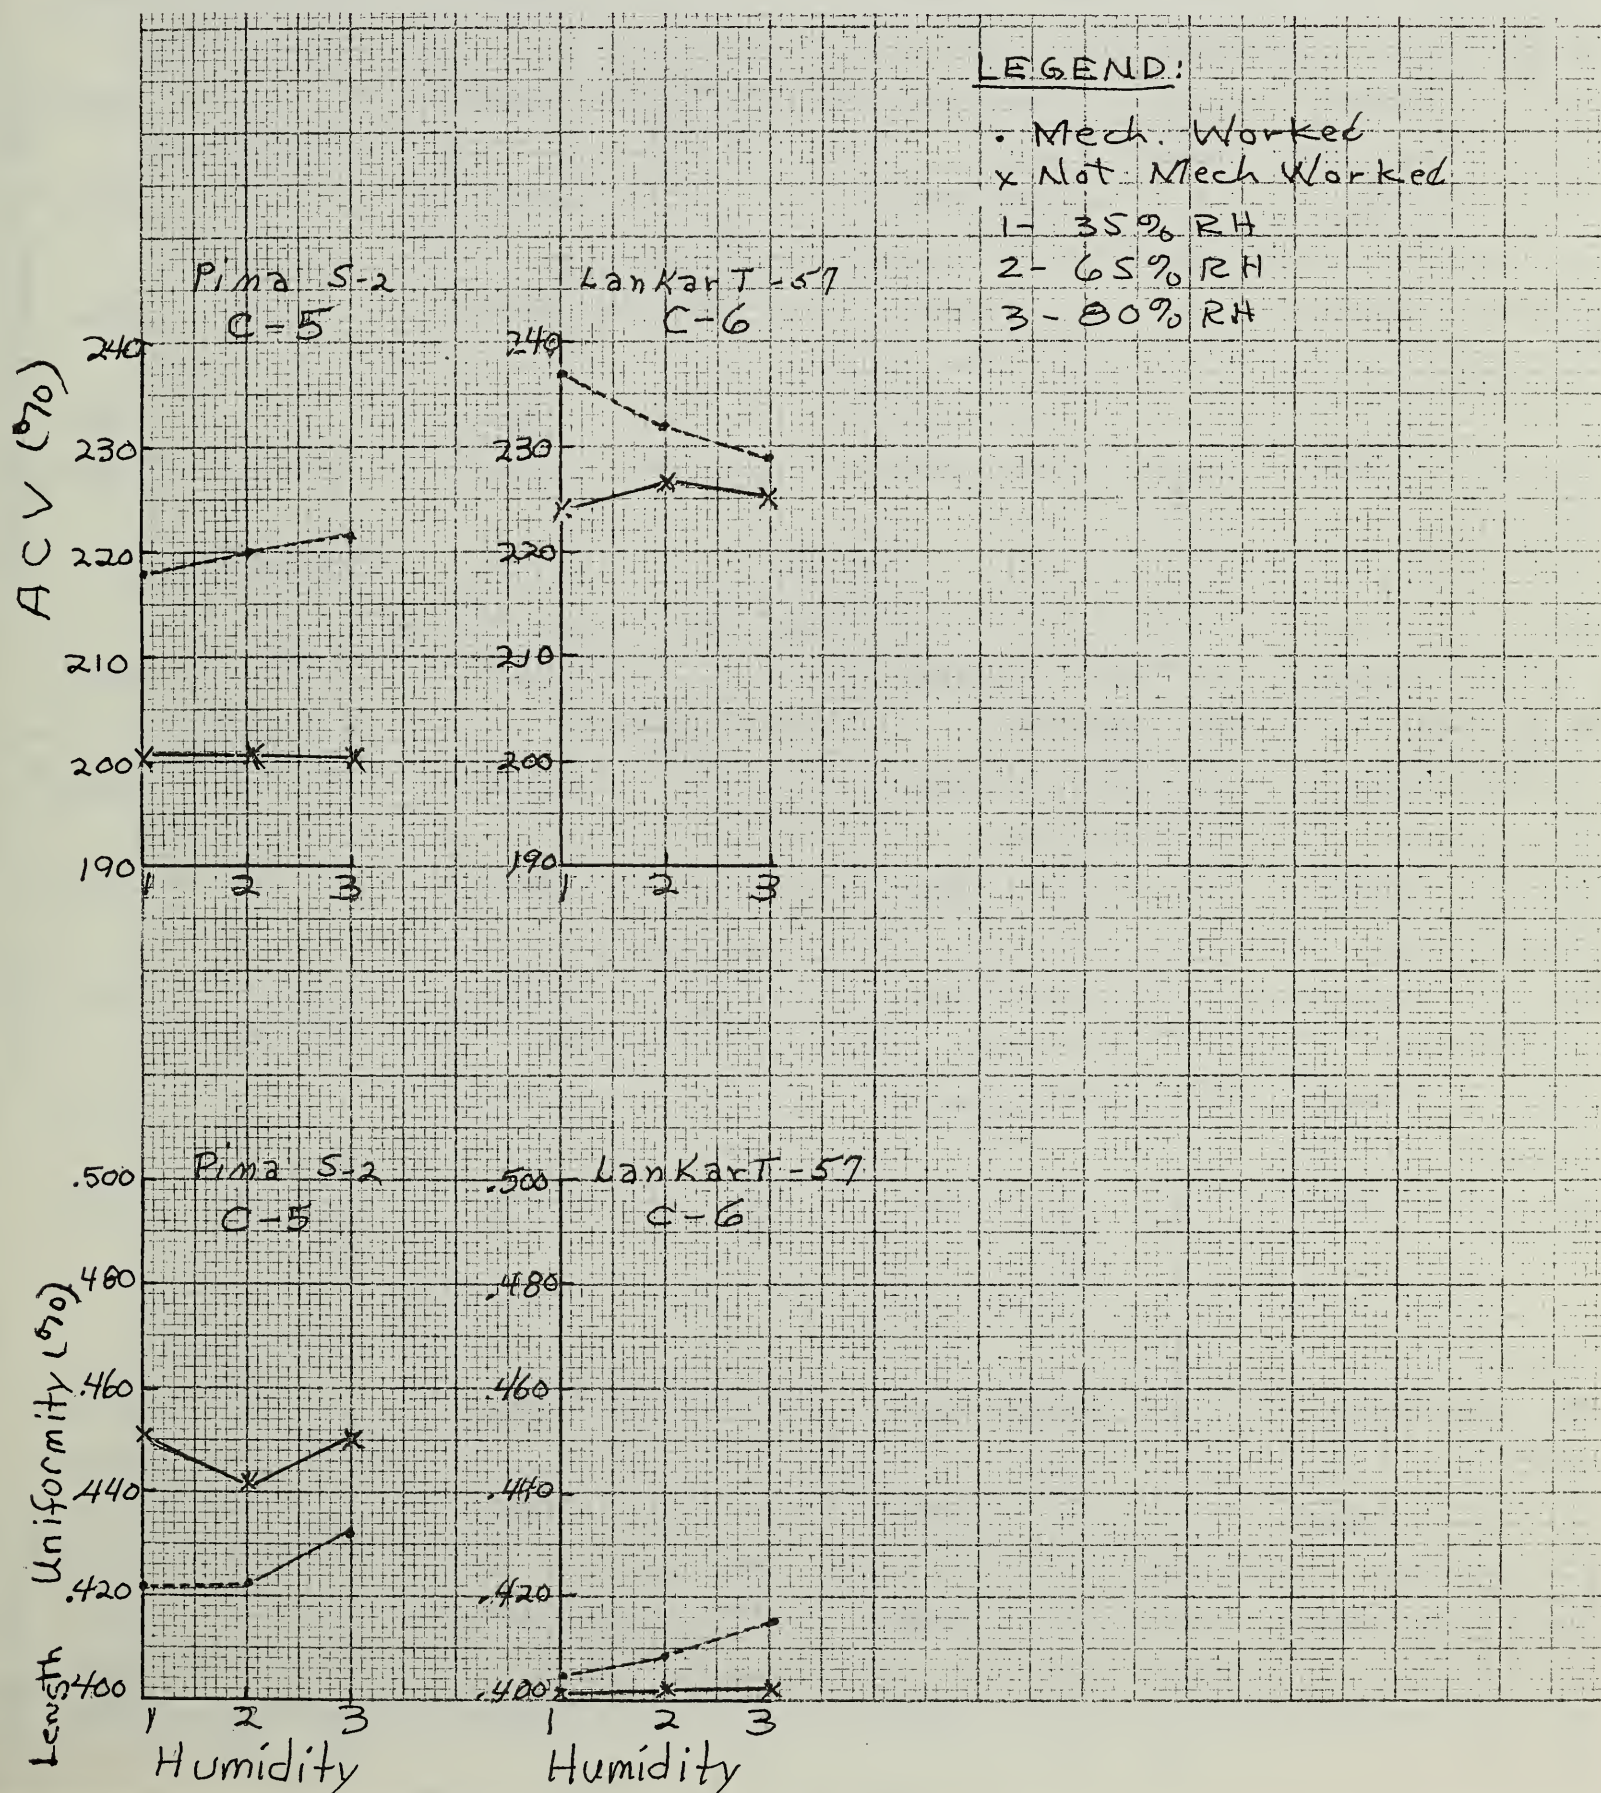 LEGEND:
. Mech. Worked
x Not Mech Worked
1- 35% RH
2- 65% RH
3- 80% RH
Pima S-2
C-5
LanKarT-57
C-6
ACV (%)
240
230
220
210
200
190
1 2 3
240
230
220
210
200
190
1 2 3
Pima S-2
C-5
LanKarT-57
C-6
Length Uniformity (%)
.500
.480
.460
.440
.420
.400
1 2 3
Humidity
.500
.480
.460
.440
.420
.400
1 2 3
Humidity